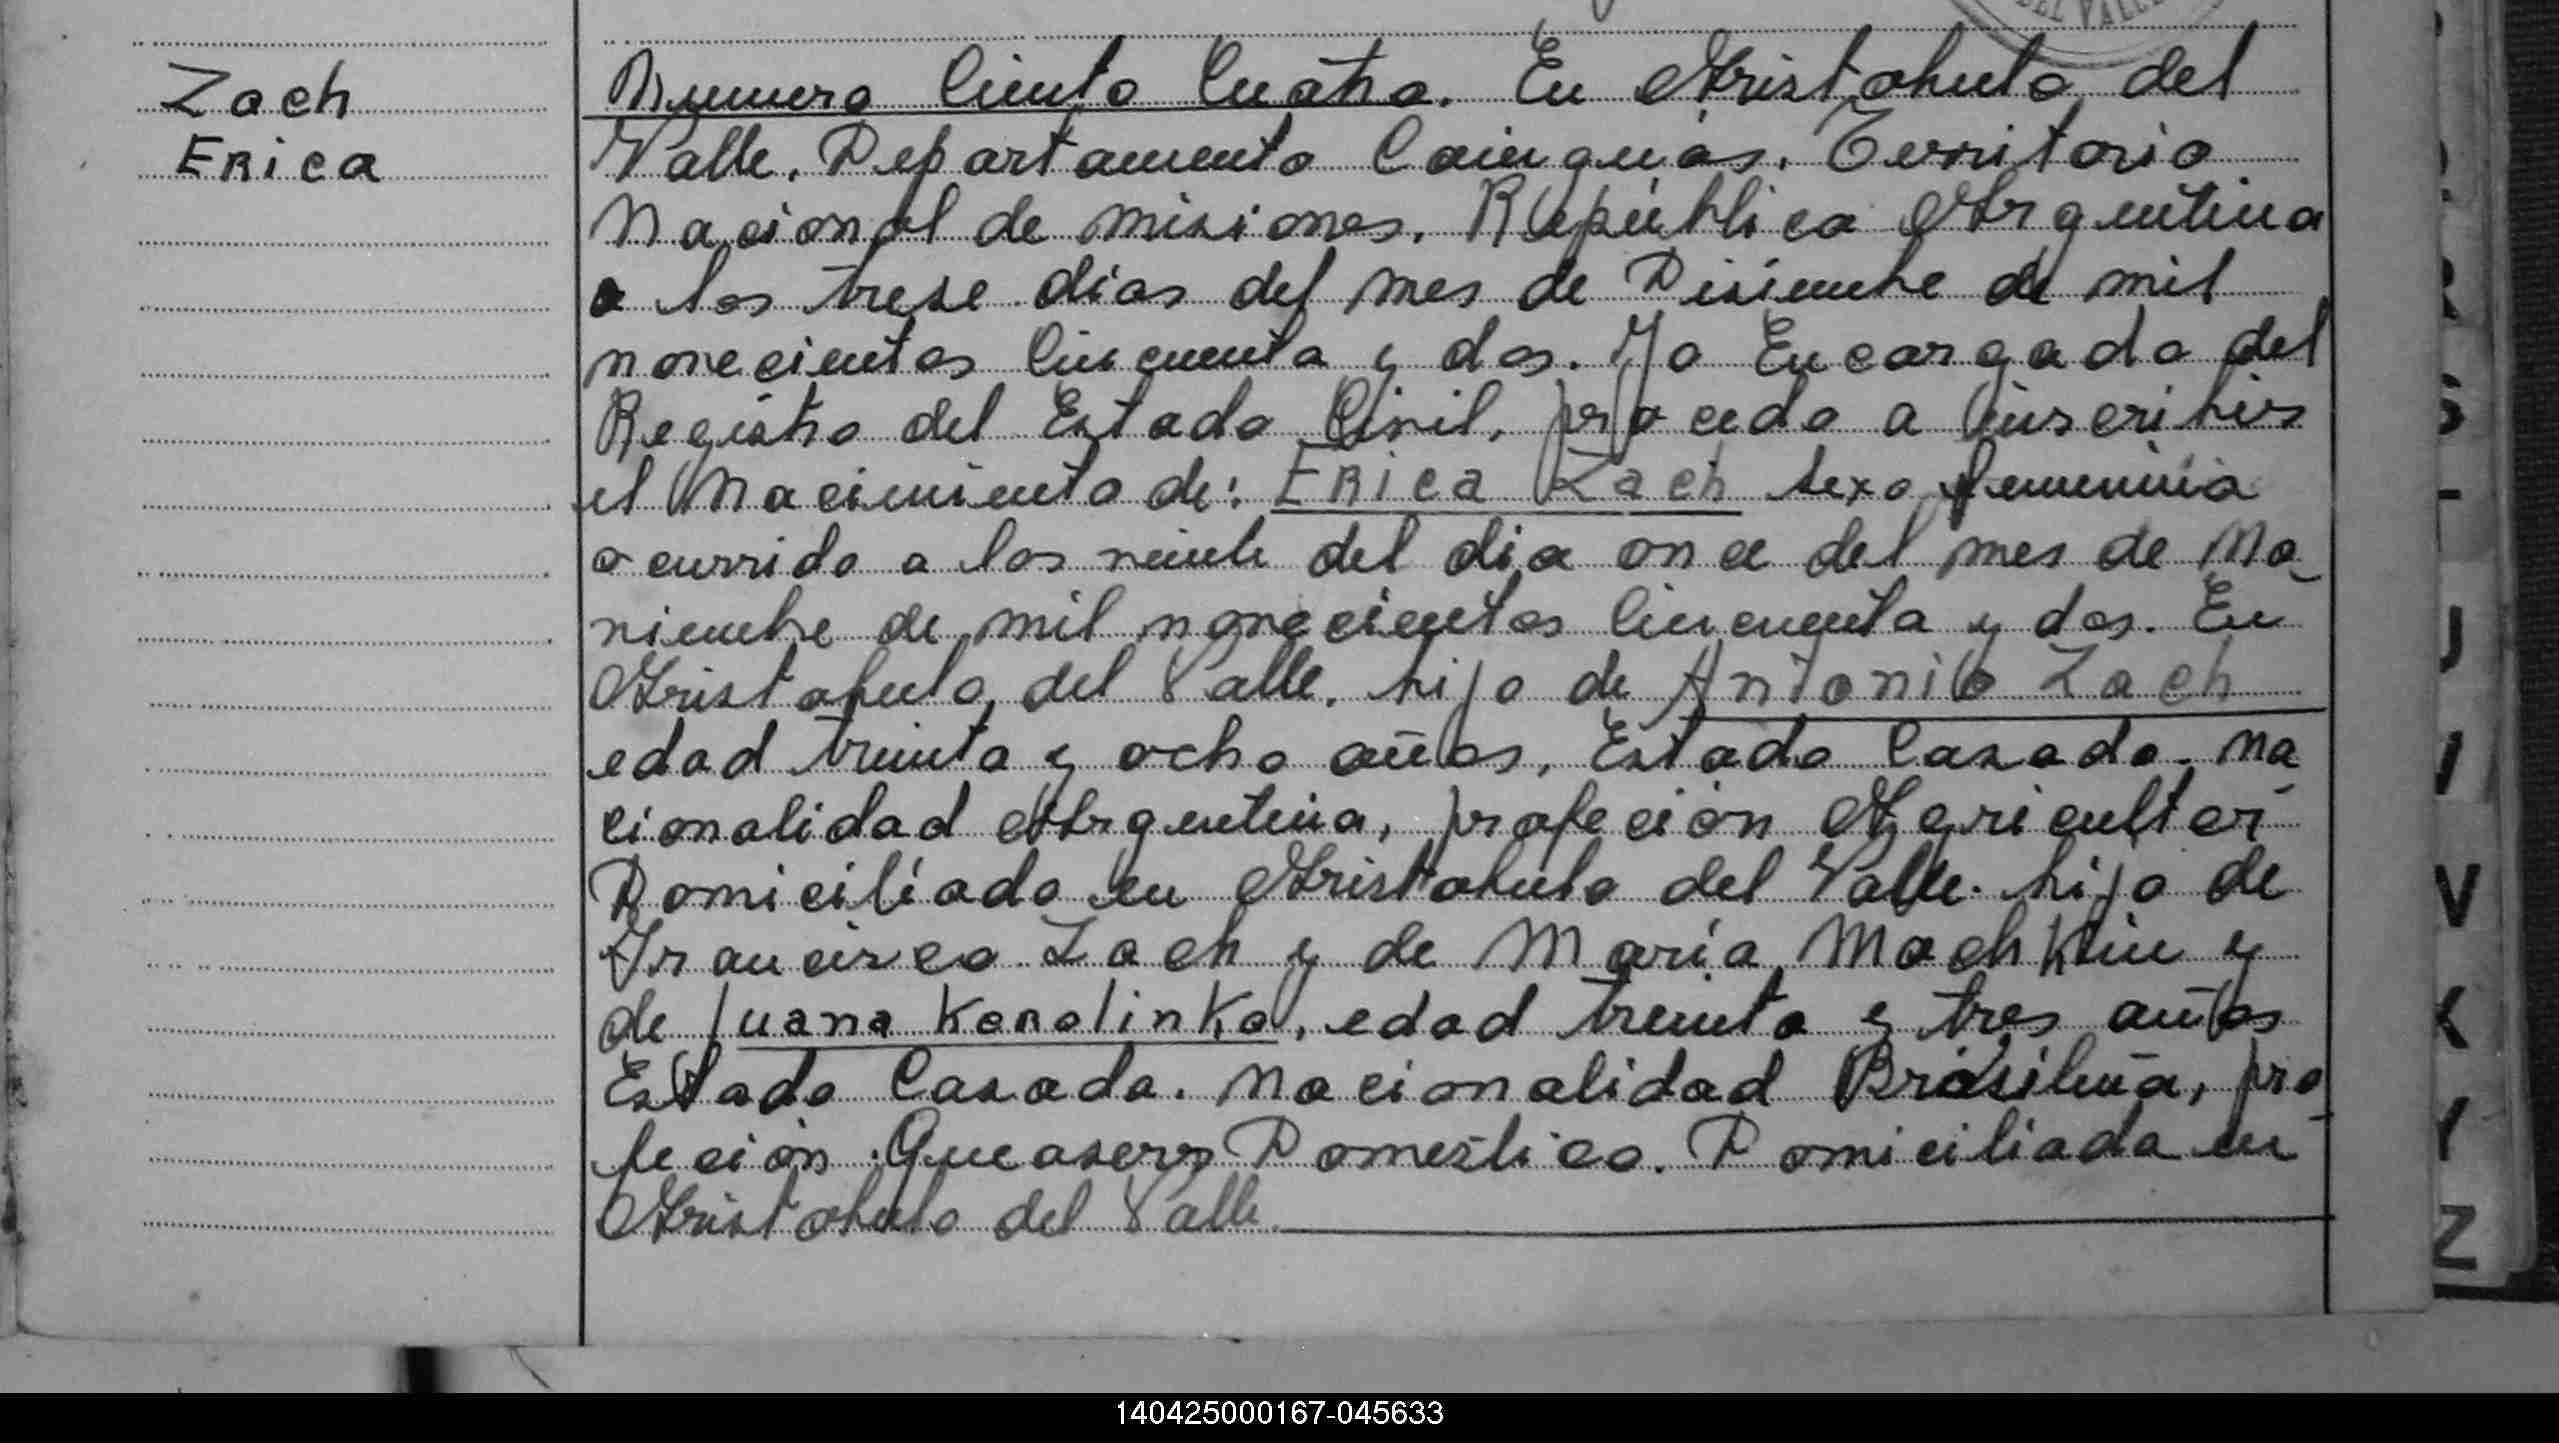 DEL VALLE
Zach
Erica
Numero Ciento Cuatro. En Aristobulo del
Valle, Departamento Cainguas, Territorio
Nacional de Misiones, República Argentina
a los trese dias del mes de Disiembre de mil
novecientos Cincuenta y dos. Yo Encargado del
Registro del Estado Civil, procedo a inscribir
el Nacimiento de: Erica Zach sexo femenino
ocurrido a las veinte del dia once del mes de No
viembre de mil novecientos Cincuenta y dos. En
Aristobulo del Valle, hija de Antonio Zach
edad treinta y ocho años, Estado Casado. Na
cionalidad Argentina, profeción Agricultor
Domiciliado en Aristobulo del Valle. hijo de
Francisco Zach y de Maria y
de Juana Karolinka, edad treinta y tres años
Estado Casada. Nacionalidad Brasileña, pro
feción Queaseres Domestico. Domiciliada en
Aristobulo del Valle.
Z
140425000167-045633